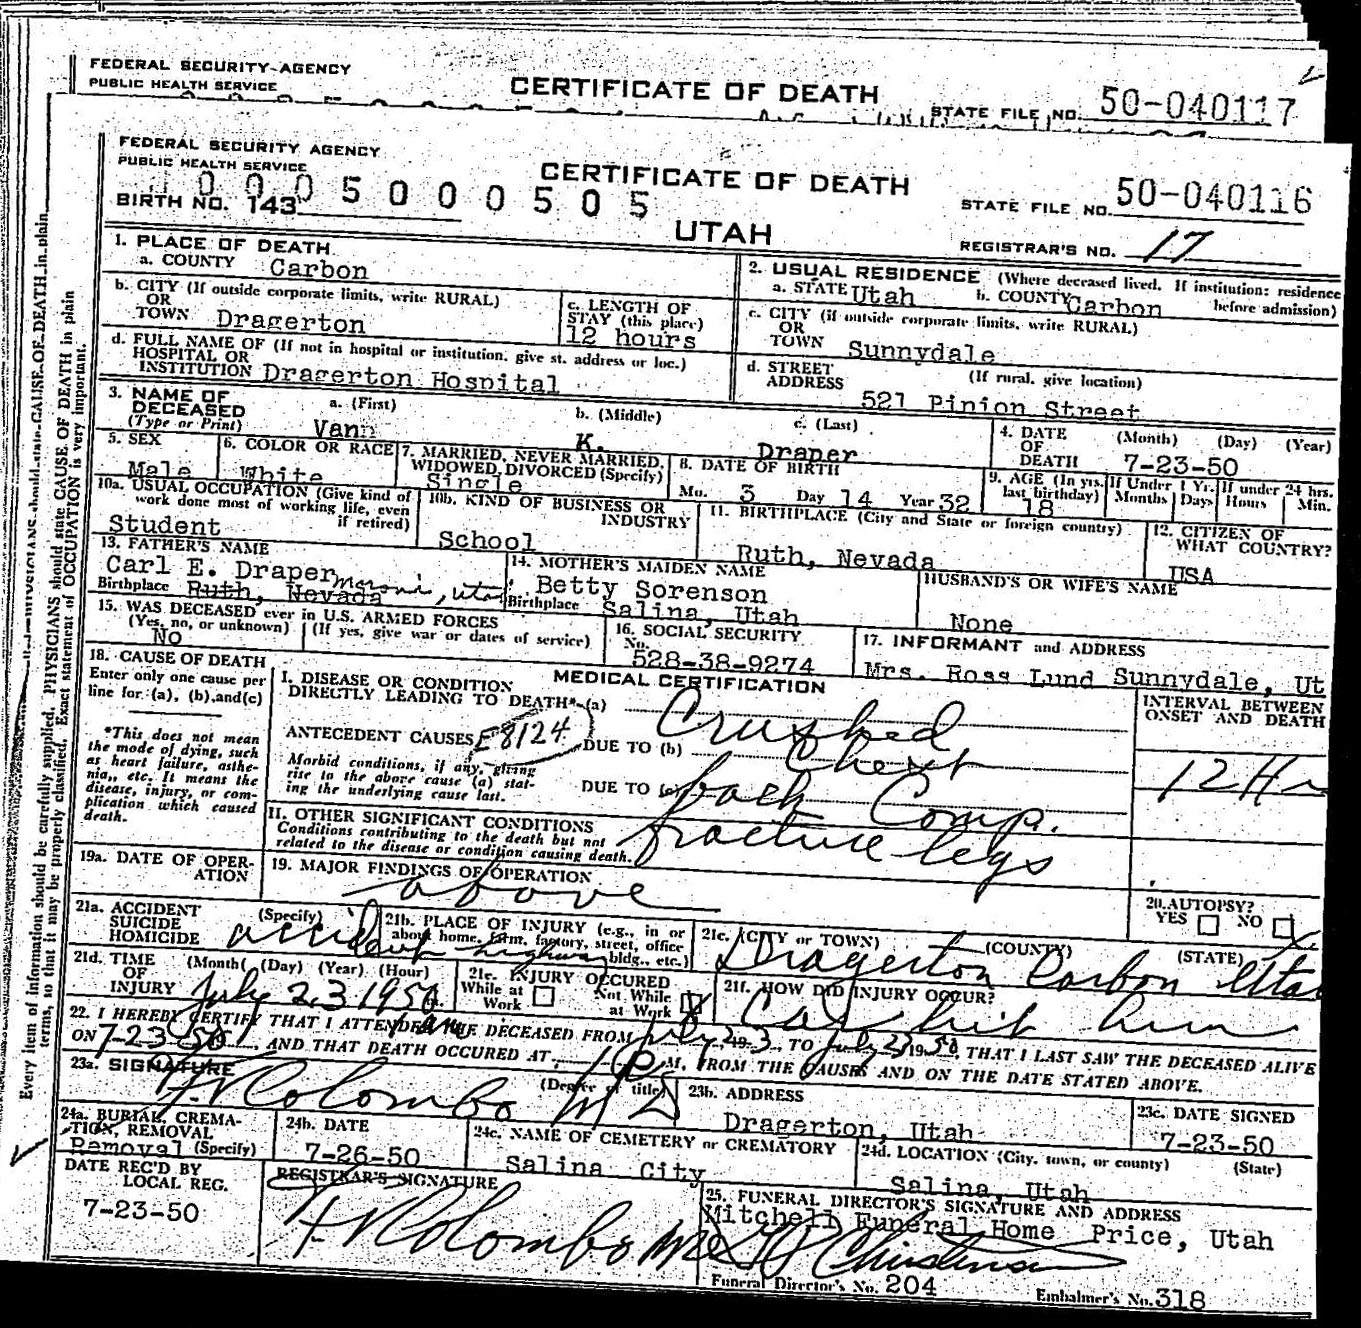 FEDERAL SECURITY AGENCY
PUBLIC HEALTH SERVICE
CERTIFICATE OF DEATH
STATE FILE NO. 50-040117
FEDERAL SECURITY AGENCY
PUBLIC HEALTH SERVICE
CERTIFICATE OF DEATH
0005000505
BIRTH NO. 143
UTAH
STATE FILE NO. 50-040116
REGISTRAR'S NO. 17
1. PLACE OF DEATH
a. COUNTY Carbon
2. USUAL RESIDENCE (Where deceased lived. If institution: residence before admission)
a. STATE Utah b. COUNTY Carbon
b. CITY (If outside corporate limits, write RURAL) OR TOWN Dragerton
c. LENGTH OF STAY (this place) 12 hours
c. CITY (if outside corporate limits, write RURAL) OR TOWN Sunnydale
d. FULL NAME OF (If not in hospital or institution, give st. address or loc.) HOSPITAL OR INSTITUTION Dragerton Hospital
d. STREET ADDRESS (If rural, give location) 521 Pinion Street
3. NAME OF DECEASED (Type or Print)
a. (First) Vann b. (Middle) K. c. (Last) Draper
4. DATE OF DEATH (Month) (Day) (Year) 7-23-50
5. SEX Male
6. COLOR OR RACE White
7. MARRIED, NEVER MARRIED, WIDOWED, DIVORCED (Specify) Single
8. DATE OF BIRTH Mo. 3 Day 14 Year 32
9. AGE (In yrs. last birthday) 18 If Under 1 Yr. Months Days If under 24 hrs. Hours Min.
10a. USUAL OCCUPATION (Give kind of work done most of working life, even if retired) Student
10b. KIND OF BUSINESS OR INDUSTRY School
11. BIRTHPLACE (City and State or foreign country) Ruth, Nevada
12. CITIZEN OF WHAT COUNTRY? USA
13. FATHER'S NAME Carl E. Draper
Birthplace Ruth, Nevada Moroni, Utah
14. MOTHER'S MAIDEN NAME Betty Sorenson
Birthplace Salina, Utah
HUSBAND'S OR WIFE'S NAME None
15. WAS DECEASED ever in U.S. ARMED FORCES (Yes, no, or unknown) (If yes, give war or dates of service) No
16. SOCIAL SECURITY No. 528-38-9274
17. INFORMANT and ADDRESS Mrs. Ross Lund Sunnydale, Ut
18. CAUSE OF DEATH
Enter only one cause per line for (a), (b), and (c)
MEDICAL CERTIFICATION
INTERVAL BETWEEN ONSET AND DEATH
12 Hr
I. DISEASE OR CONDITION DIRECTLY LEADING TO DEATH* (a) Crushed
ANTECEDENT CAUSES E8124 DUE TO (b) Chest
Morbid conditions, if any, giving rise to the above cause (a) stating the underlying cause last. DUE TO (c) both Comp.
*This does not mean the mode of dying, such as heart failure, asthenia, etc. It means the disease, injury, or complication which caused death.
II. OTHER SIGNIFICANT CONDITIONS
Conditions contributing to the death but not related to the disease or condition causing death. fracture legs
19a. DATE OF OPERATION
19. MAJOR FINDINGS OF OPERATION above
20. AUTOPSY? YES NO
21a. ACCIDENT SUICIDE HOMICIDE (Specify) accident
21b. PLACE OF INJURY (e.g., in or about home, farm, factory, street, office bldg., etc.) highway
21c. (CITY or TOWN) (COUNTY) (STATE) Dragerton Carbon Utah
21d. TIME OF INJURY (Month) (Day) (Year) (Hour) July 23 1950
21e. INJURY OCCURED While at Work Not While at Work
21f. HOW DID INJURY OCCUR? Car hit him
22. I HEREBY CERTIFY THAT I ATTENDED THE DECEASED FROM July 23 TO July 23 1950, THAT I LAST SAW THE DECEASED ALIVE
ON 7-23-50 AND THAT DEATH OCCURED AT 1 P M. FROM THE CAUSES AND ON THE DATE STATED ABOVE.
23a. SIGNATURE (Degree or title) F. V. Colombo MD
23b. ADDRESS Dragerton, Utah
23c. DATE SIGNED 7-23-50
24a. BURIAL, CREMATION, REMOVAL (Specify) Removal
24b. DATE 7-26-50
24c. NAME OF CEMETERY or CREMATORY Salina City
24d. LOCATION (City, town, or county) (State) Salina, Utah
DATE REC'D BY LOCAL REG. 7-23-50
REGISTRAR'S SIGNATURE F. V. Colombo
25. FUNERAL DIRECTOR'S SIGNATURE AND ADDRESS
Mitchell Funeral Home Price, Utah
Christensen
Funeral Director's No. 204
Embalmer's No. 318
Every item of information should be carefully supplied. PHYSICIANS should state CAUSE OF DEATH in plain
terms, so that it may be properly classified. Exact statement of OCCUPATION is very important.